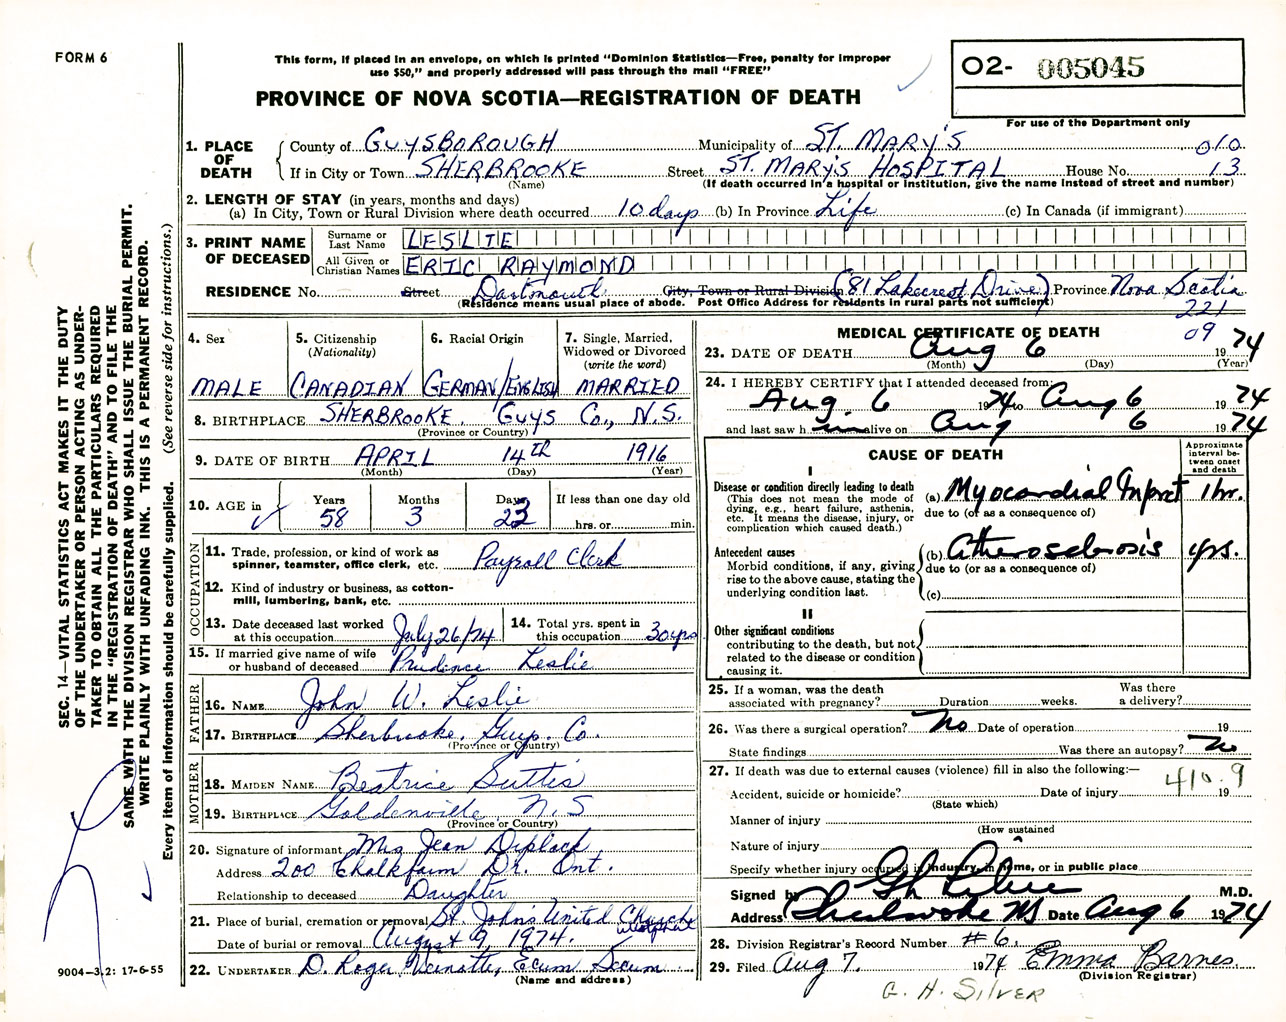 FORM 6
This form, if placed in an envelope, on which is printed "Dominion Statistics—Free, penalty for improper
use $50," and properly addressed will pass through the mail "FREE"
PROVINCE OF NOVA SCOTIA—REGISTRATION OF DEATH
02- 005045
For use of the Department only
1. PLACE OF DEATH
County of GUYSBOROUGH Municipality of ST. MARY'S 010
If in City or Town SHERBROOKE Street ST. MARY'S HOSPITAL House No. 13
(Name) (If death occurred in a hospital or institution, give the name instead of street and number)
2. LENGTH OF STAY (in years, months and days)
(a) In City, Town or Rural Division where death occurred 10 days (b) In Province Life (c) In Canada (if immigrant)
3. PRINT NAME OF DECEASED
Surname or Last Name LESLIE
All Given or Christian Names ERIC RAYMOND
RESIDENCE No. Street Dartmouth City, Town or Rural Division (81 Lakecrest Drive) Province Nova Scotia
(Residence means usual place of abode. Post Office Address for residents in rural parts not sufficient)
221
09
4. Sex 5. Citizenship (Nationality) 6. Racial Origin 7. Single, Married, Widowed or Divorced (write the word)
MALE CANADIAN GERMAN/ENGLISH MARRIED
8. BIRTHPLACE SHERBROOKE, GUYS Co., N.S.
(Province or Country)
9. DATE OF BIRTH APRIL 14th 1916
(Month) (Day) (Year)
10. AGE in Years 58 Months 3 Days 23 If less than one day old hrs. or min.
OCCUPATION
11. Trade, profession, or kind of work as spinner, teamster, office clerk, etc. Payroll Clerk
12. Kind of industry or business, as cotton-mill, lumbering, bank, etc.
13. Date deceased last worked at this occupation July 26/74 14. Total yrs. spent in this occupation 30 yrs
15. If married give name of wife or husband of deceased Prudence Leslie
FATHER
16. NAME John W. Leslie
17. BIRTHPLACE Sherbrooke, Guys. Co.
(Province or Country)
MOTHER
18. MAIDEN NAME Beatrice Suttis
19. BIRTHPLACE Goldenville N.S
(Province or Country)
20. Signature of informant Mrs Jean Diplock
Address 200 Chalkfarm Dr. Ont.
Relationship to deceased Daughter
21. Place of burial, cremation or removal St. John's United Church
Date of burial or removal August 9, 1974.
22. UNDERTAKER D. Roger Ecum Secum
(Name and address)
MEDICAL CERTIFICATE OF DEATH
23. DATE OF DEATH Aug 6 1974
(Month) (Day) (Year)
24. I HEREBY CERTIFY that I attended deceased from:
Aug. 6 1974 to Aug 6 1974
and last saw h im alive on Aug 6 1974
CAUSE OF DEATH
Approximate interval between onset and death
I
Disease or condition directly leading to death
(This does not mean the mode of dying, e.g., heart failure, asthenia, etc. It means the disease, injury, or complication which caused death.)
(a) Myocardial Infarct 1 hr.
due to (or as a consequence of)
Antecedent causes
Morbid conditions, if any, giving rise to the above cause, stating the underlying condition last.
(b) Atherosclerosis yrs.
due to (or as a consequence of)
(c)
II
Other significant conditions
contributing to the death, but not related to the disease or condition causing it.
25. If a woman, was the death associated with pregnancy? Duration weeks. Was there a delivery?
26. Was there a surgical operation? No Date of operation 19
State findings Was there an autopsy? No
27. If death was due to external causes (violence) fill in also the following:—
410.9
Accident, suicide or homicide? Date of injury 19
(State which)
Manner of injury
(How sustained
Nature of injury
Specify whether injury occurred in industry, in home, or in public place
Signed by M.D.
Address Sherbrooke NS Date Aug 6 1974
28. Division Registrar's Record Number #6
29. Filed Aug 7. 1974 Emma Barnes
(Division Registrar)
G. H. SILVER
SEC. 14—VITAL STATISTICS ACT MAKES IT THE DUTY
OF THE UNDERTAKER OR PERSON ACTING AS UNDER-
TAKER TO OBTAIN ALL THE PARTICULARS REQUIRED
IN THE "REGISTRATION OF DEATH" AND TO FILE THE
SAME WITH THE DIVISION REGISTRAR WHO SHALL ISSUE THE BURIAL PERMIT.
WRITE PLAINLY WITH UNFADING INK. THIS IS A PERMANENT RECORD.
Every item of information should be carefully supplied. (See reverse side for instructions.)
9004-3.2: 17-6-55